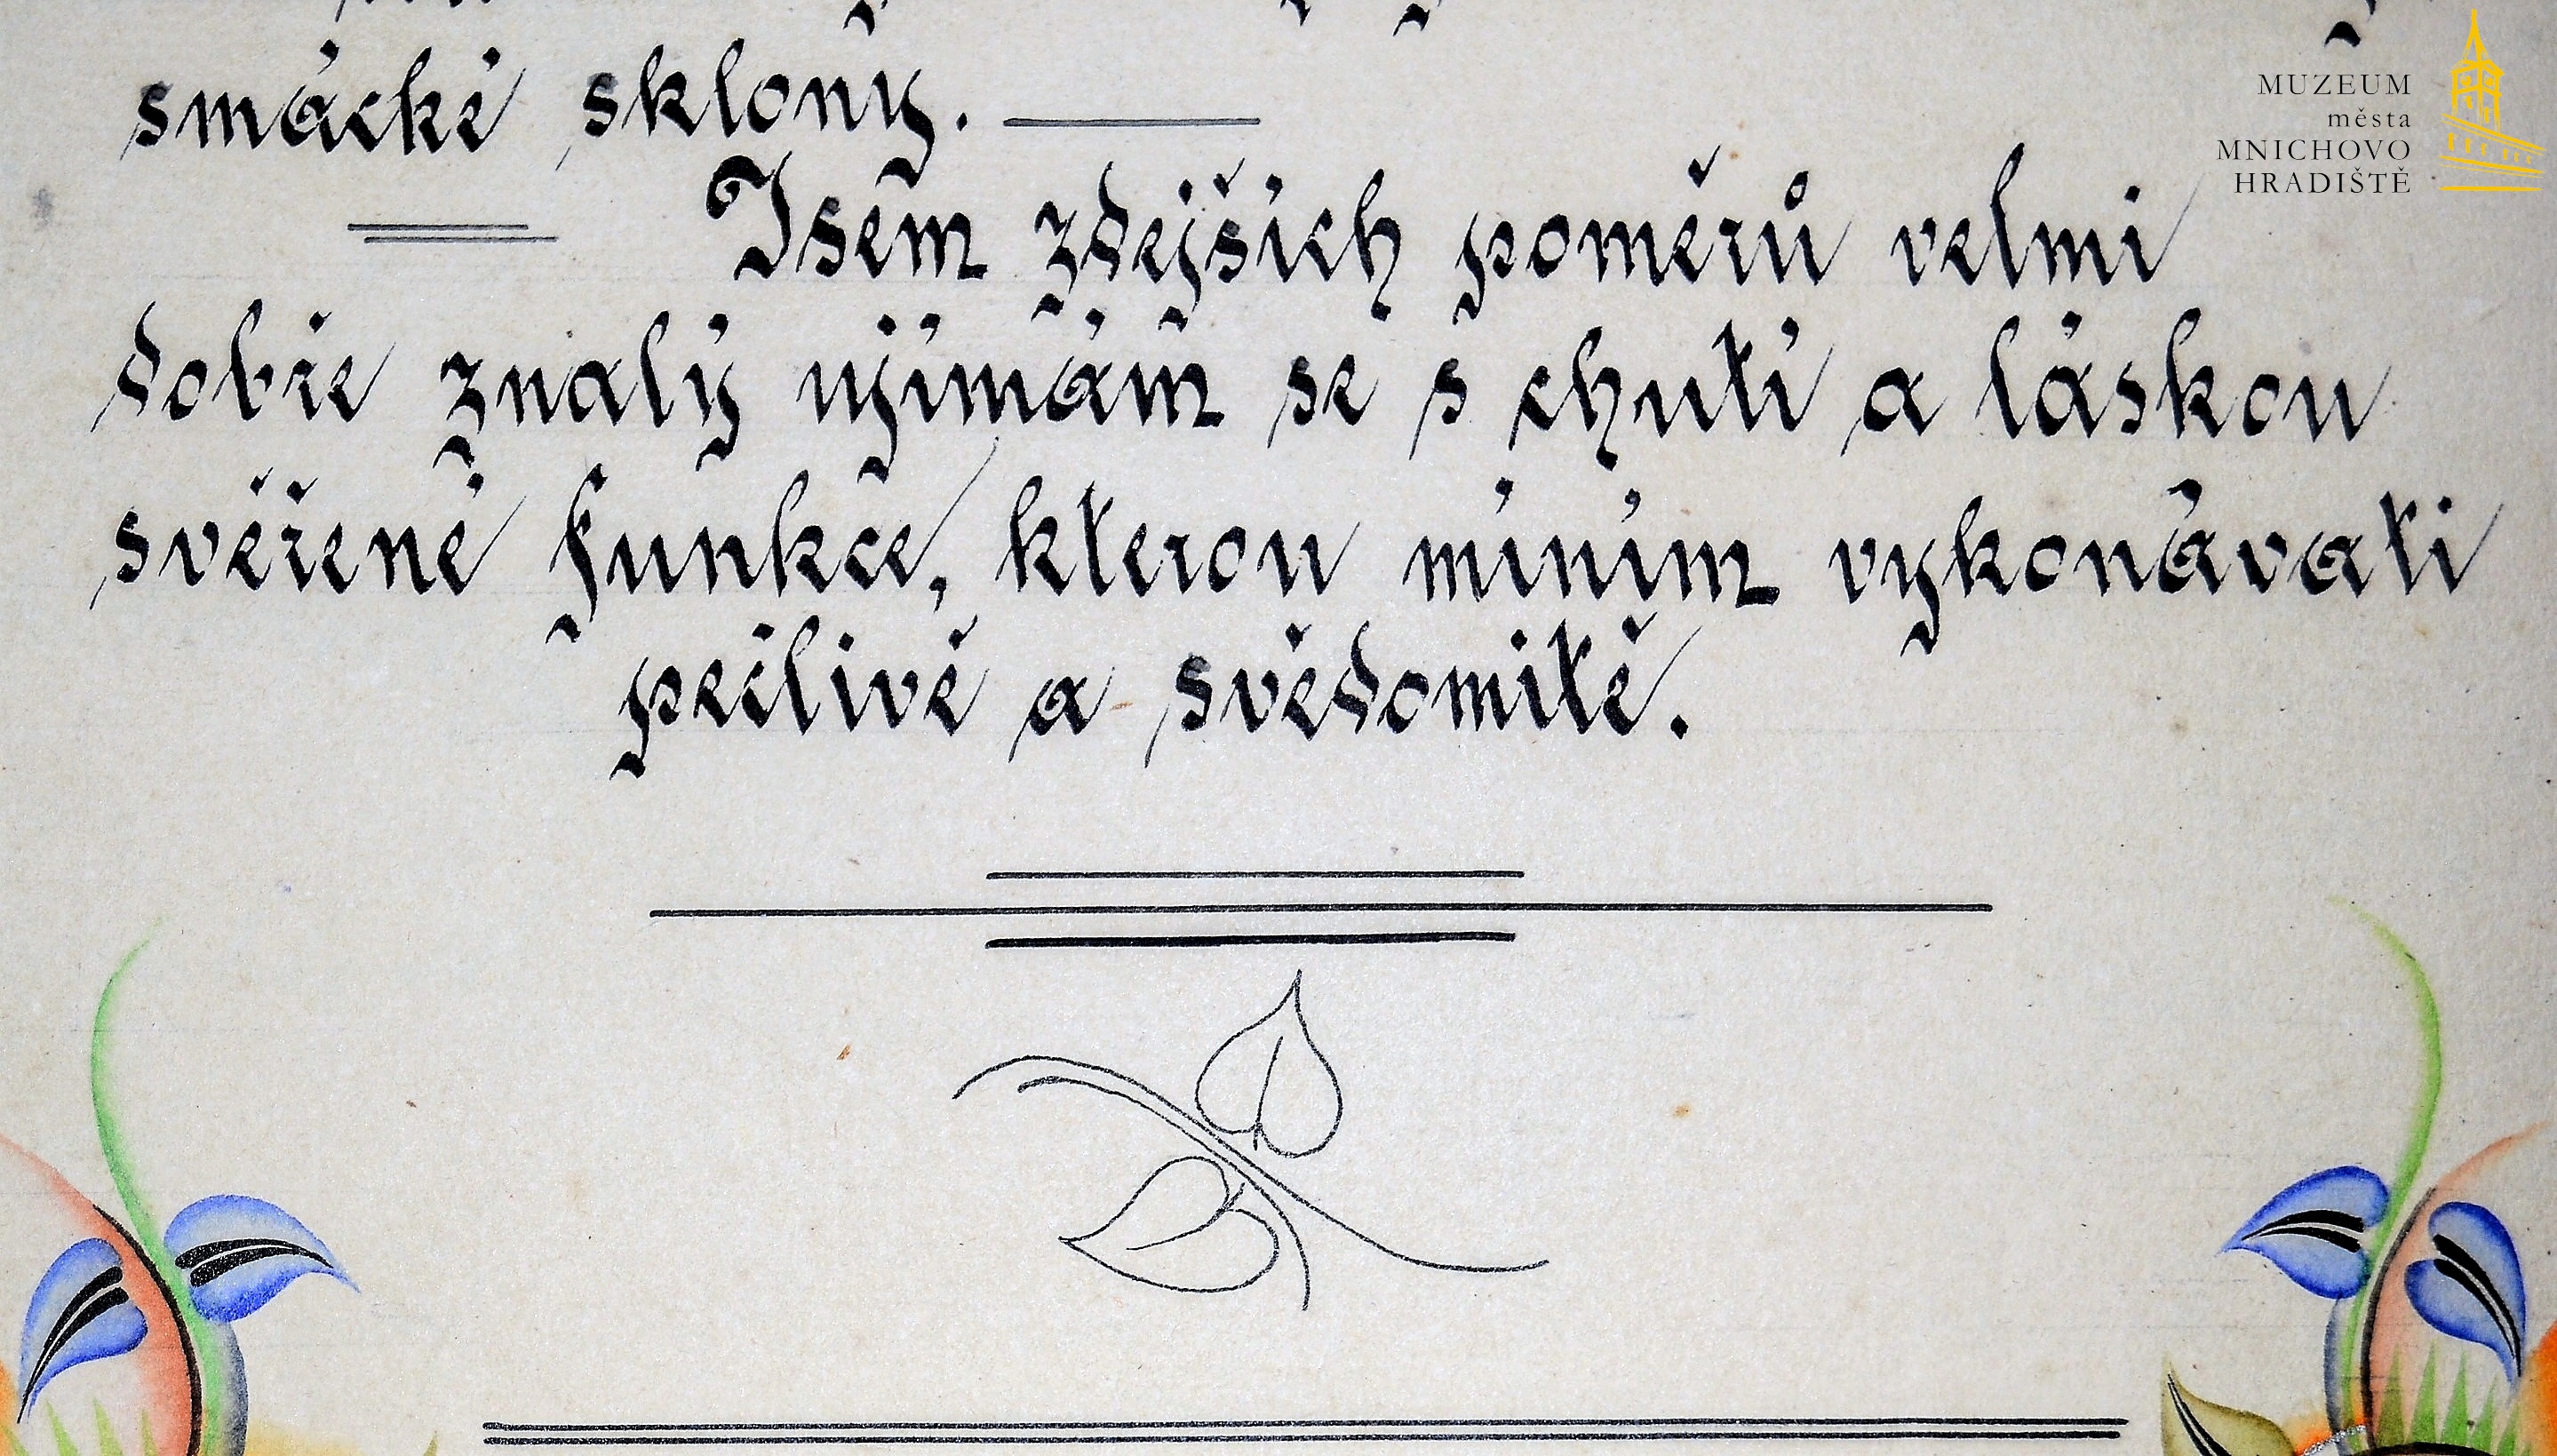 smácké sklony.
Jsem zdejších poměrů velmi
dobře znalý ujímám se s chutí a láskou
svěřené funkce, kterou míním vykonávati
pečlivě a svědomitě.
MUZEUM
města
MNICHOVO
HRADIŠTĚ